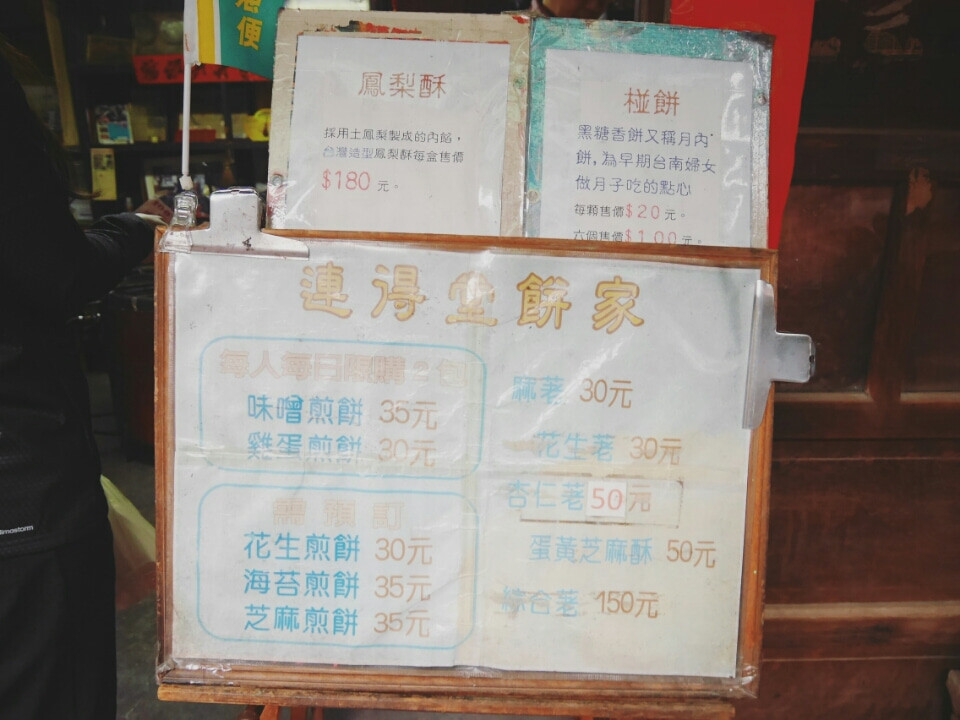 便
鳳梨酥
採用土鳳梨製成的內餡，
台灣造型鳳梨酥每盒售價
$180 元。
椪餅
黑糖香餅又稱月內
餅,為早期台南婦女
做月子吃的點心
每顆售價$20元。
六個售價$100元。
連得堂餅家
每人每日限購2包
味噌煎餅 35元
雞蛋煎餅 30元
需預訂
花生煎餅 30元
海苔煎餅 35元
芝麻煎餅 35元
荖 30元
花生荖 30元
杏仁荖50元
蛋黃芝麻酥 50元
綜合荖 150元